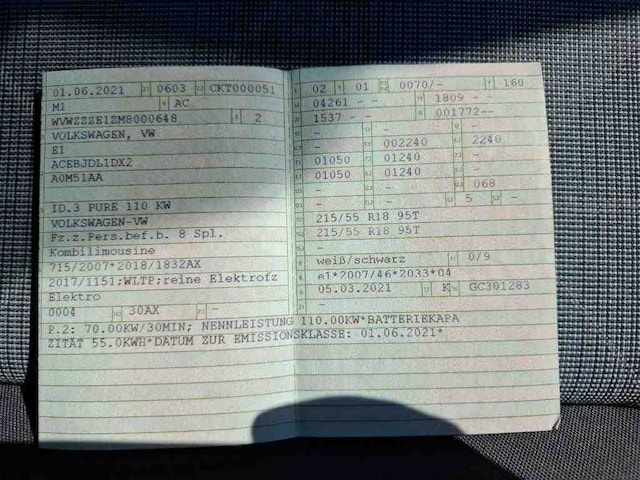 01.06.2021 0603 CKT000051
M1 AC
WVWZZZE1ZM8000648 2
VOLKSWAGEN, VW
E1
ACEBJDL1DX2
A0M51AA
ID.3 PURE 110 KW
VOLKSWAGEN-VW
Fz.z.Pers.bef.b. 8 Spl.
Kombilimousine
715/2007*2018/1832AX
2017/1151;WLTP;reine Elektrofz
Elektro
0004 30AX -
02 01 0070/- 160
04261 - - 1809 - -
1537 - - 001772--
- - -
- 002240 2240
01050 01240 -
01050 01240 -
- - 068
- - 5 -
215/55 R18 95T
215/55 R18 95T
- -
weiß/schwarz 0/9
e1*2007/46*2033*04
05.03.2021 K GC301283
-
P.2: 70.00KW/30MIN; NENNLEISTUNG 110.00KW*BATTERIEKAPA
ZITÄT 55.0KWH*DATUM ZUR EMISSIONSKLASSE: 01.06.2021*